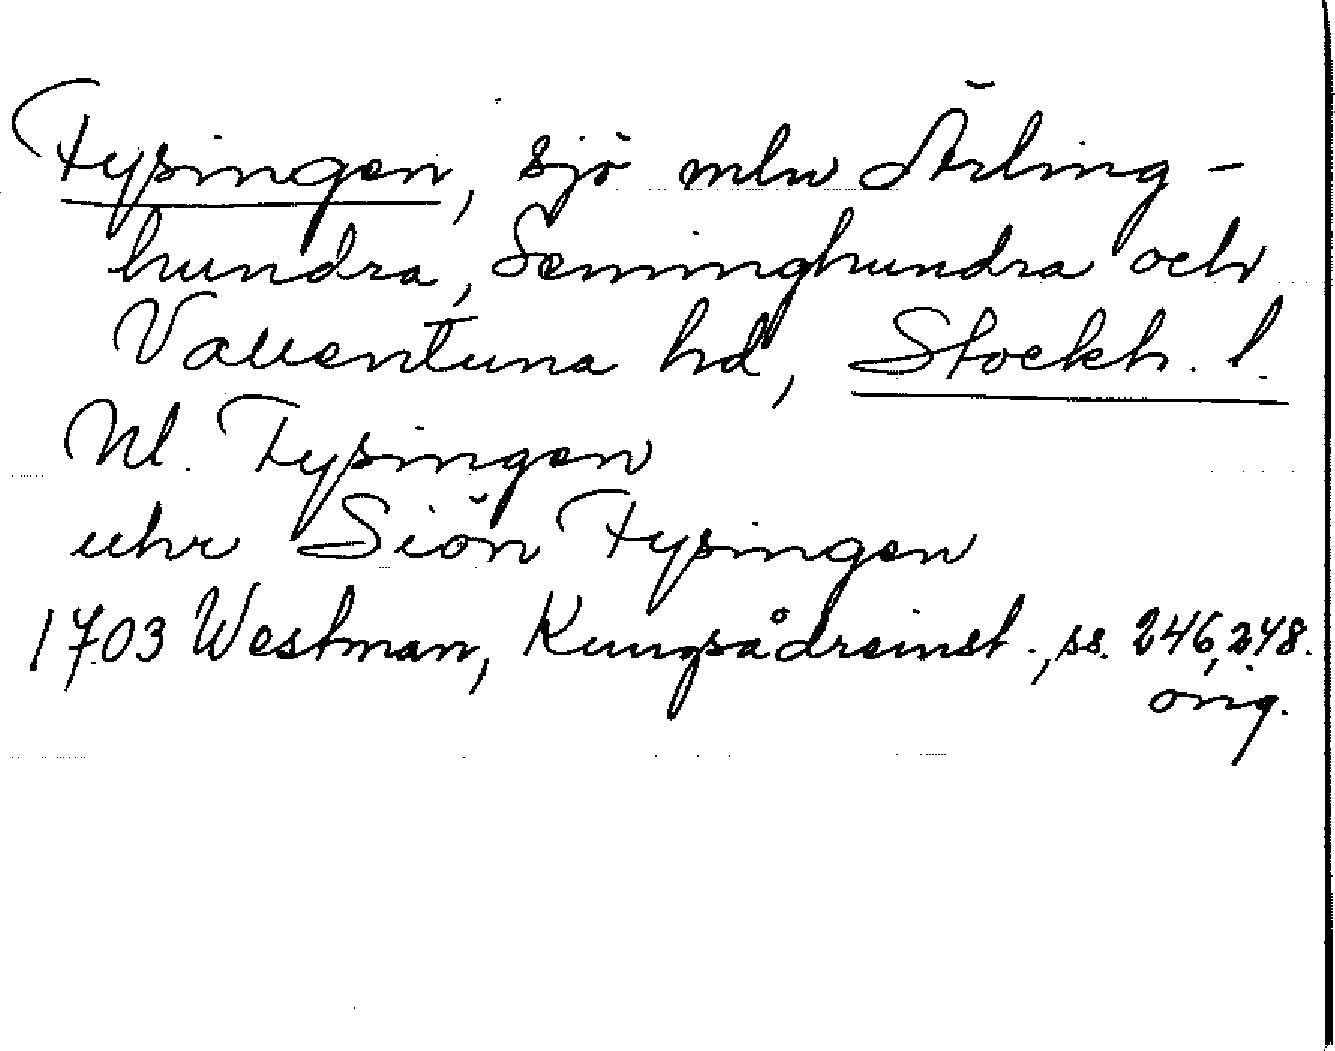 Fysingen, sjö mln Ärling-
hundra, Seminghundra och
Vallentuna hd, Stockh. l.
Nl. Fysingen
uhr Siön Fysingen
1703 Westman, Kungsådreinst., ss. 246, 248.
orig.